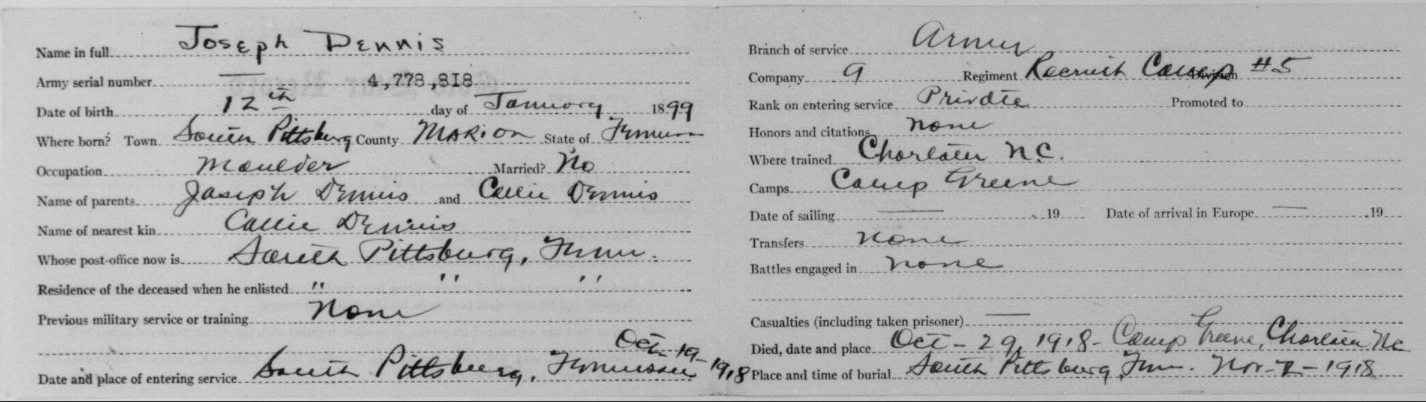 Name in full Joseph Dennis
Army serial number 4,778,818
Date of birth 12th day of January 1899
Where born? Town South Pittsburg County Marion State of Tennessee
Occupation Moulder Married? No
Name of parents Joseph Dennis and Callie Dennis
Name of nearest kin Callie Dennis
Whose post-office now is South Pittsburg, Tenn.
Residence of the deceased when he enlisted " " "
Previous military service or training None
Oct-19-1918
Date and place of entering service South Pittsburg, Tennessee
Branch of service Army
Company 9 Regiment Recruit Camp #5
Rank on entering service Private Promoted to
Honors and citations none
Where trained Charlotte N.C.
Camps Camp Greene
Date of sailing — 19 Date of arrival in Europe — 19
Transfers none
Battles engaged in none
Casualties (including taken prisoner) —
Died, date and place Oct-29, 1918- Camp Greene, Charlotte N.C.
Place and time of burial South Pittsburg Tenn. Nov-2-1918